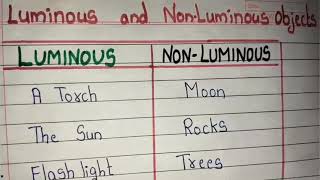 Luminous and Non-Luminous Objects
LUMINOUS NON-LUMINOUS
A Torch Moon
The Sun Rocks
Flash light Trees